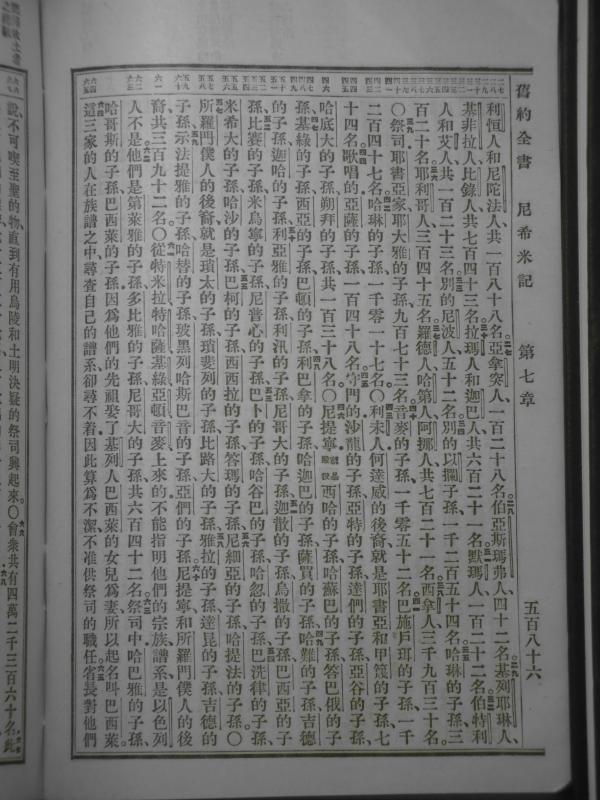 舊約全書 尼希米記 第七章 五百八十六
利恒人和尼陀法人共一百八十八名亞拿突人一百二十八名伯亞斯瑪弗人四十二名基列耶琳人
基非拉人比錄人共七百四十三名拉瑪人和迦巴人共六百二十一名默瑪人一百二十二名伯特利
人和艾人共一百二十三名別的尼波人五十二名別的以攔子孫一千二百五十四名哈琳的子孫三
百二十名耶利哥人三百四十五名羅德人哈第人阿挪人共七百二十一名西拿人三千九百三十名
〇祭司耶書亞家耶大雅的子孫九百七十三名音麥的子孫一千零五十二名巴施戶珥的子孫一千
二百四十七名哈琳的子孫一千零一十七名〇利未人何達威的後裔就是耶書亞和甲篾的子孫七
十四名歌唱的亞薩的子孫一百四十八名守門的沙龍的子孫亞特的子孫達們的子孫亞谷的子孫
哈底大的子孫朔拜的子孫共一百三十八名〇尼提寧西哈的子孫哈蘇巴的子孫答巴俄的子
孫基綠的子孫西亞的子孫巴頓的子孫利巴拿的子孫哈迦巴的子孫薩買的子孫哈難的子孫吉德
的子孫迦哈的子孫利亞雅的子孫利汛的子孫尼哥大的子孫迦散的子孫烏撒的子孫巴西亞的子
孫比賽的子孫米烏寧的子孫尼普心的子孫巴卜的子孫哈谷巴的子孫哈忽的子孫巴洗律的子孫
米希大的子孫哈沙的子孫巴柯的子孫西西拉的子孫答瑪的子孫尼細亞的子孫哈提法的子孫〇
所羅門僕人的後裔就是瑣太的子孫瑣斐列的子孫比路大的子孫雅拉的子孫達昆的子孫吉德的
子孫示法提雅的子孫哈替的子孫玻黑列哈斯巴音的子孫亞們的子孫尼提寧和所羅門僕人的後
裔共三百九十二名〇從特米拉特哈薩基綠亞頓音麥上來的不能指明他們的宗族譜系是以色列
人不是他們是第萊雅的子孫多比雅的子孫尼哥大的子孫共六百四十二名祭司中哈巴雅的子孫
哈哥斯的子孫巴西萊的子孫因爲他們的先祖娶了基列人巴西萊的女兒爲妻所以起名叫巴西萊
這三家的人在族譜之中尋查自己的譜系卻尋不着因此算爲不潔不准供祭司的職任省長對他們
說不可喫至聖的物直到有用烏陵和土明決疑的祭司興起來〇會衆共有四萬二千三百六十名此